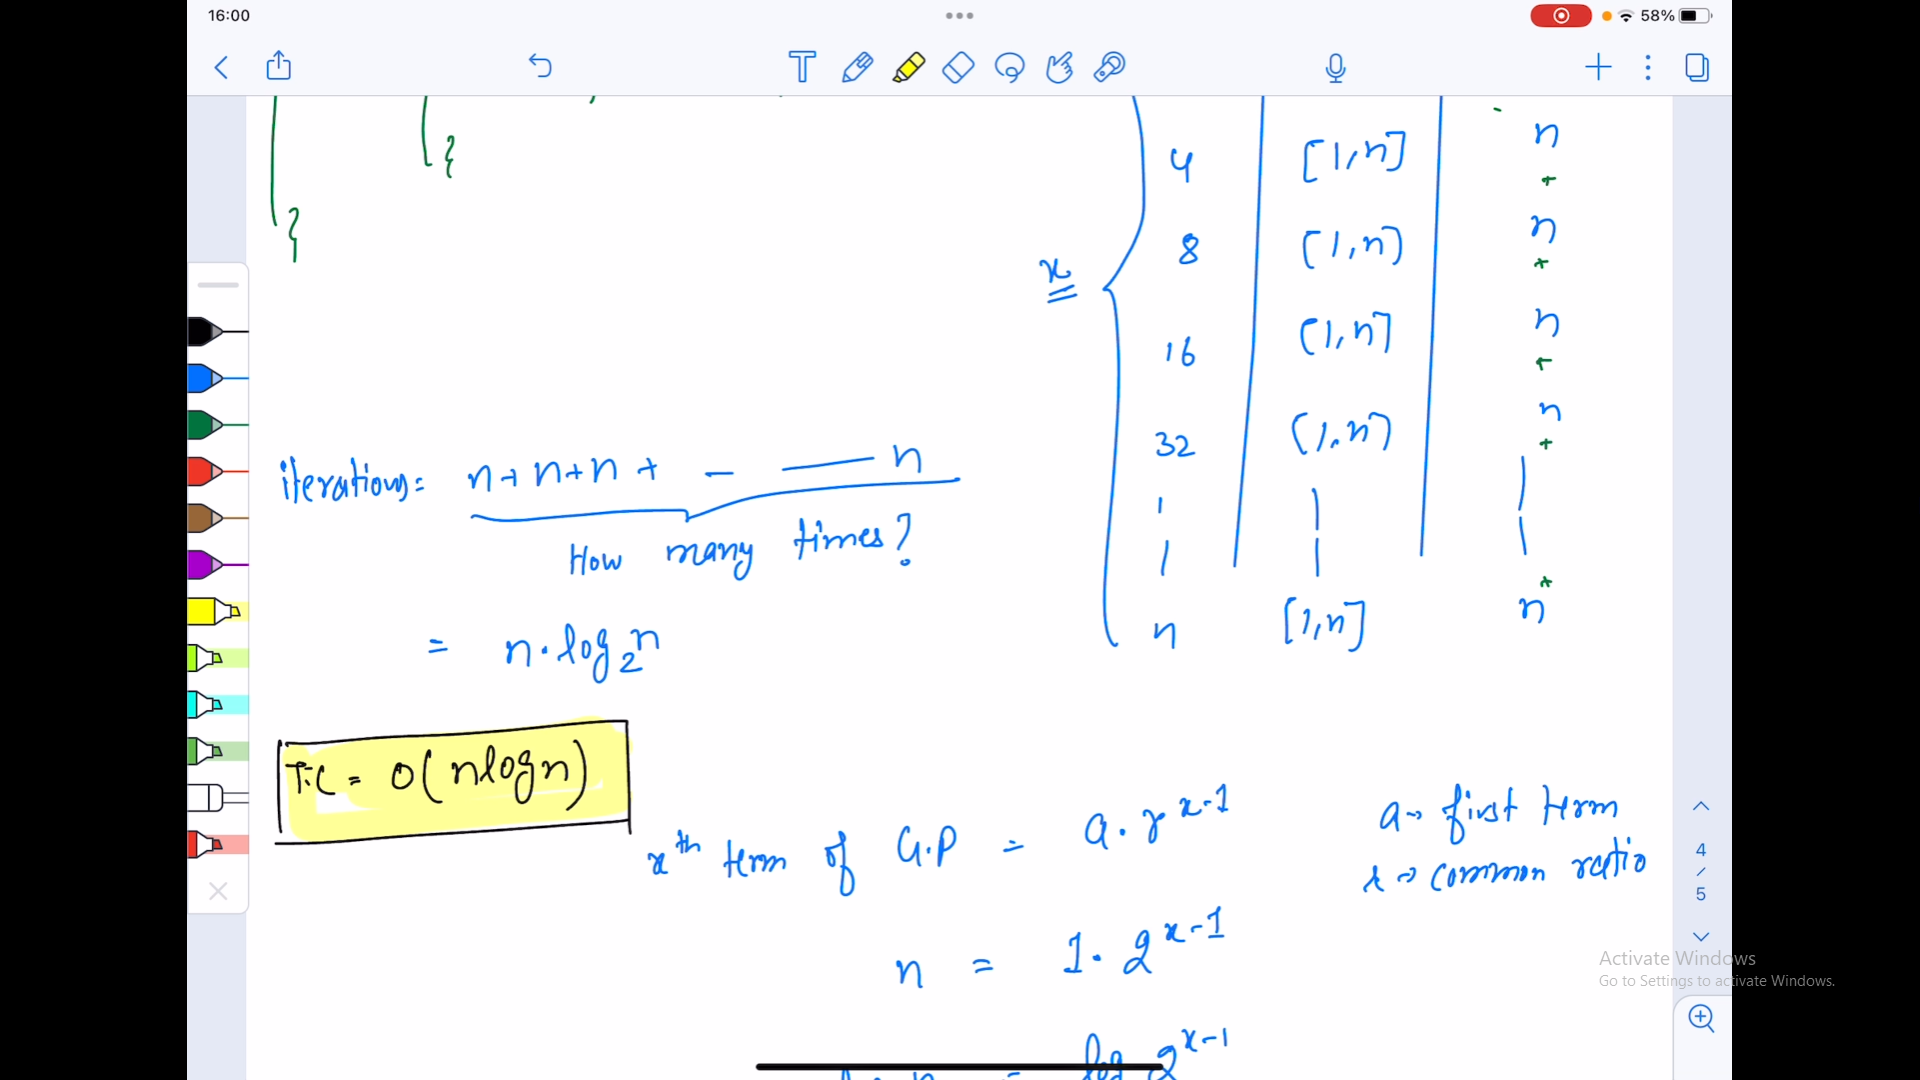 16:00
58%
n
4 [1,n]
+
8 [1,n] n
+
x
16 [1,n] n
+
32 [1,n] n
+
iterations = n+n+n + - — n
How many times?
+
n [1,n] n
= n·log₂n
T.C = O(nlogn)
xᵗʰ term of G.P = a·r^(x-1)
a → first term
r → common ratio
n = 1·2^(x-1)
log 2^(x-1)
4
/
5
Activate Windows
Go to Settings to activate Windows.